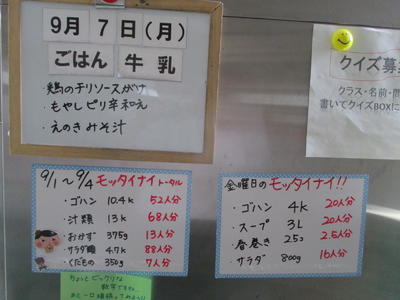 9月 7日(月)
ごはん 牛乳
・鶏のチリソースがけ
・もやしピリ辛和え
・えのきみそ汁
クイズ募
クラス・名前・問
書いてクイズBOXに
9/1〜9/4 モッタイナイトータル
・ゴハン 10.4k 52人分
・汁類 13k 68人分
・おかず 375g 13人分
・サラダ類 4.7k 88人分
・くだもの 350g 7人分
ちょっとビックリな
数字ですね…
金曜日のモッタイナイ!!
・ゴハン 4k 20人分
・スープ 3L 20人分
・春巻き 2.5コ 2.5人分
・サラダ 800g 16人分